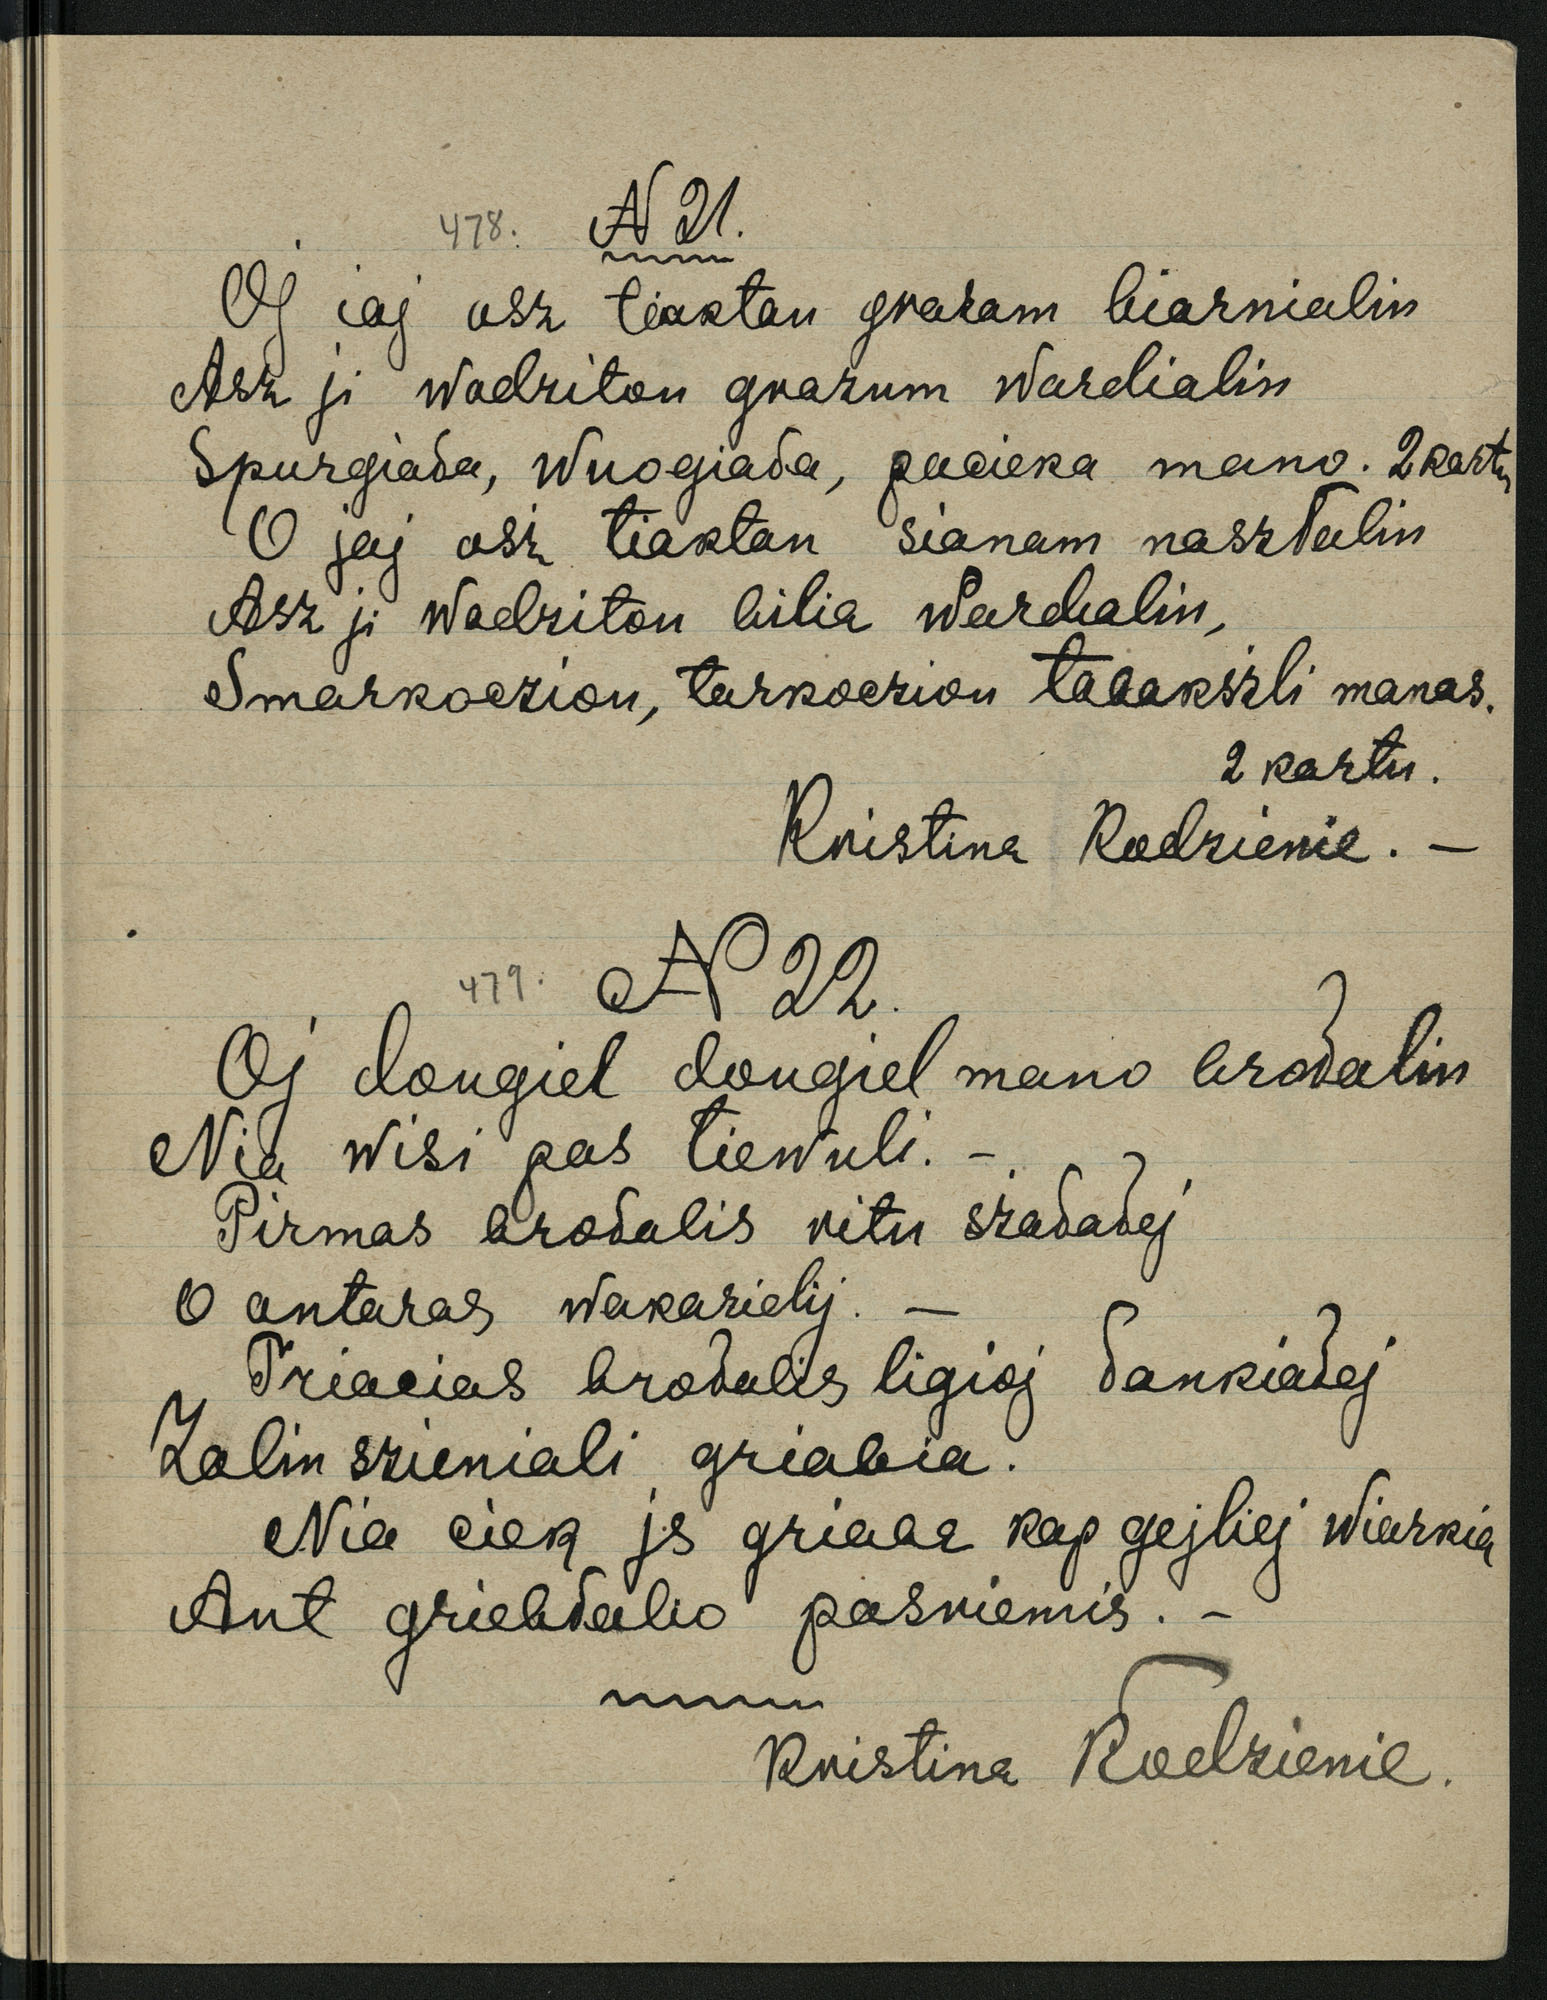 478. N 21.
Oj iaj asz tiaktau grazam biarnialin
Asz ji wadzitau grazum wardialin
Spurgiała, wuogiała, pacieka mano. 2 kartu
O jaj asz tiaktau sianam naszłalin
Asz ji wadzitau bilia wardialin,
Smarkocziou, tarkocziou tabakszli manas.
2 kartu.
Kristina Kodzienie. —
479. N 22.
Oj dougiel dougiel mano brołalin
Nia wisi pas tiewuli. —
Pirmas brołalis ritu szaładej
O antaras wakarielij. —
Triacias brołalis ligioj łankiałej
Zalin szieniali griabia.
Nia ciek js griaba kap gejliej wiarkia
Ant griebłalio pasriemis. —
Kristina Kodzienie.